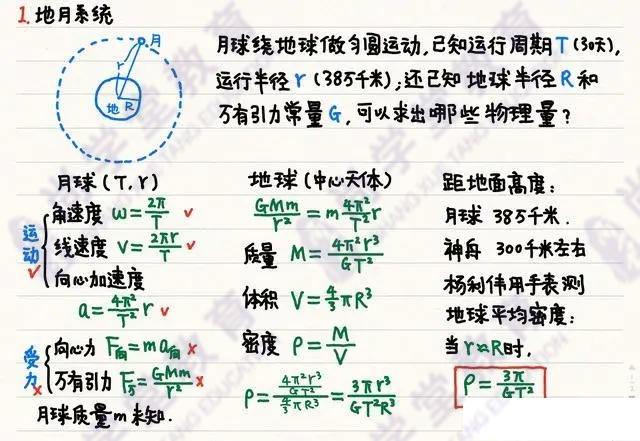 1. 地月系统
月
r
地 R
月球绕地球做匀圆运动,已知运行周期T(30天),
运行半径r(38万千米);还已知地球半径R和
万有引力常量G,可以求出哪些物理量?
月球(T,r)
运动
角速度 ω=2π/T ✓
线速度 V=2πr/T ✓
✓
向心加速度
a=4π²/T² r ✓
受力
向心力 F向=ma向 ×
×
万有引力 F万=GMm/r² ×
月球质量m未知.
地球(中心天体)
GMm/r²=m4π²/T² r
质量 M=4π²r³/GT²
体积 V=4/3πR³
密度 ρ=M/V
ρ=(4π²r³/GT²)/(4/3πR³)=3πr³/GT²R³
距地面高度:
月球 38万千米.
神舟 300千米左右
杨利伟用手表测
地球平均密度:
当r≈R时,
ρ=3π/GT²